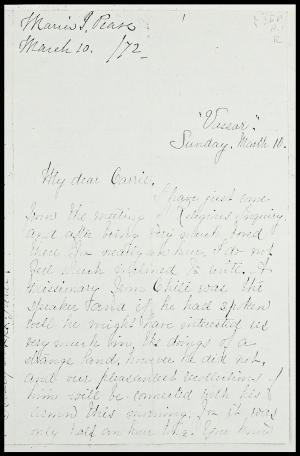 Marie J. Pease
March 10. /72
"Vassar".
Sunday, March 10.
My dear Carrie,
I have just come
from the meeting of Religious Inquiry
and after being very much bored
there for nearly an hour, I do not
feel much inclined to write. A
missionary from Chili was the
speaker and if he had spoken
well he might have interested us
very much in the doings of a
strange land, however he did not,
and our pleasantest recollections of
him will be connected with his
sermon this morning, for it was
only half an hour long. Your kind